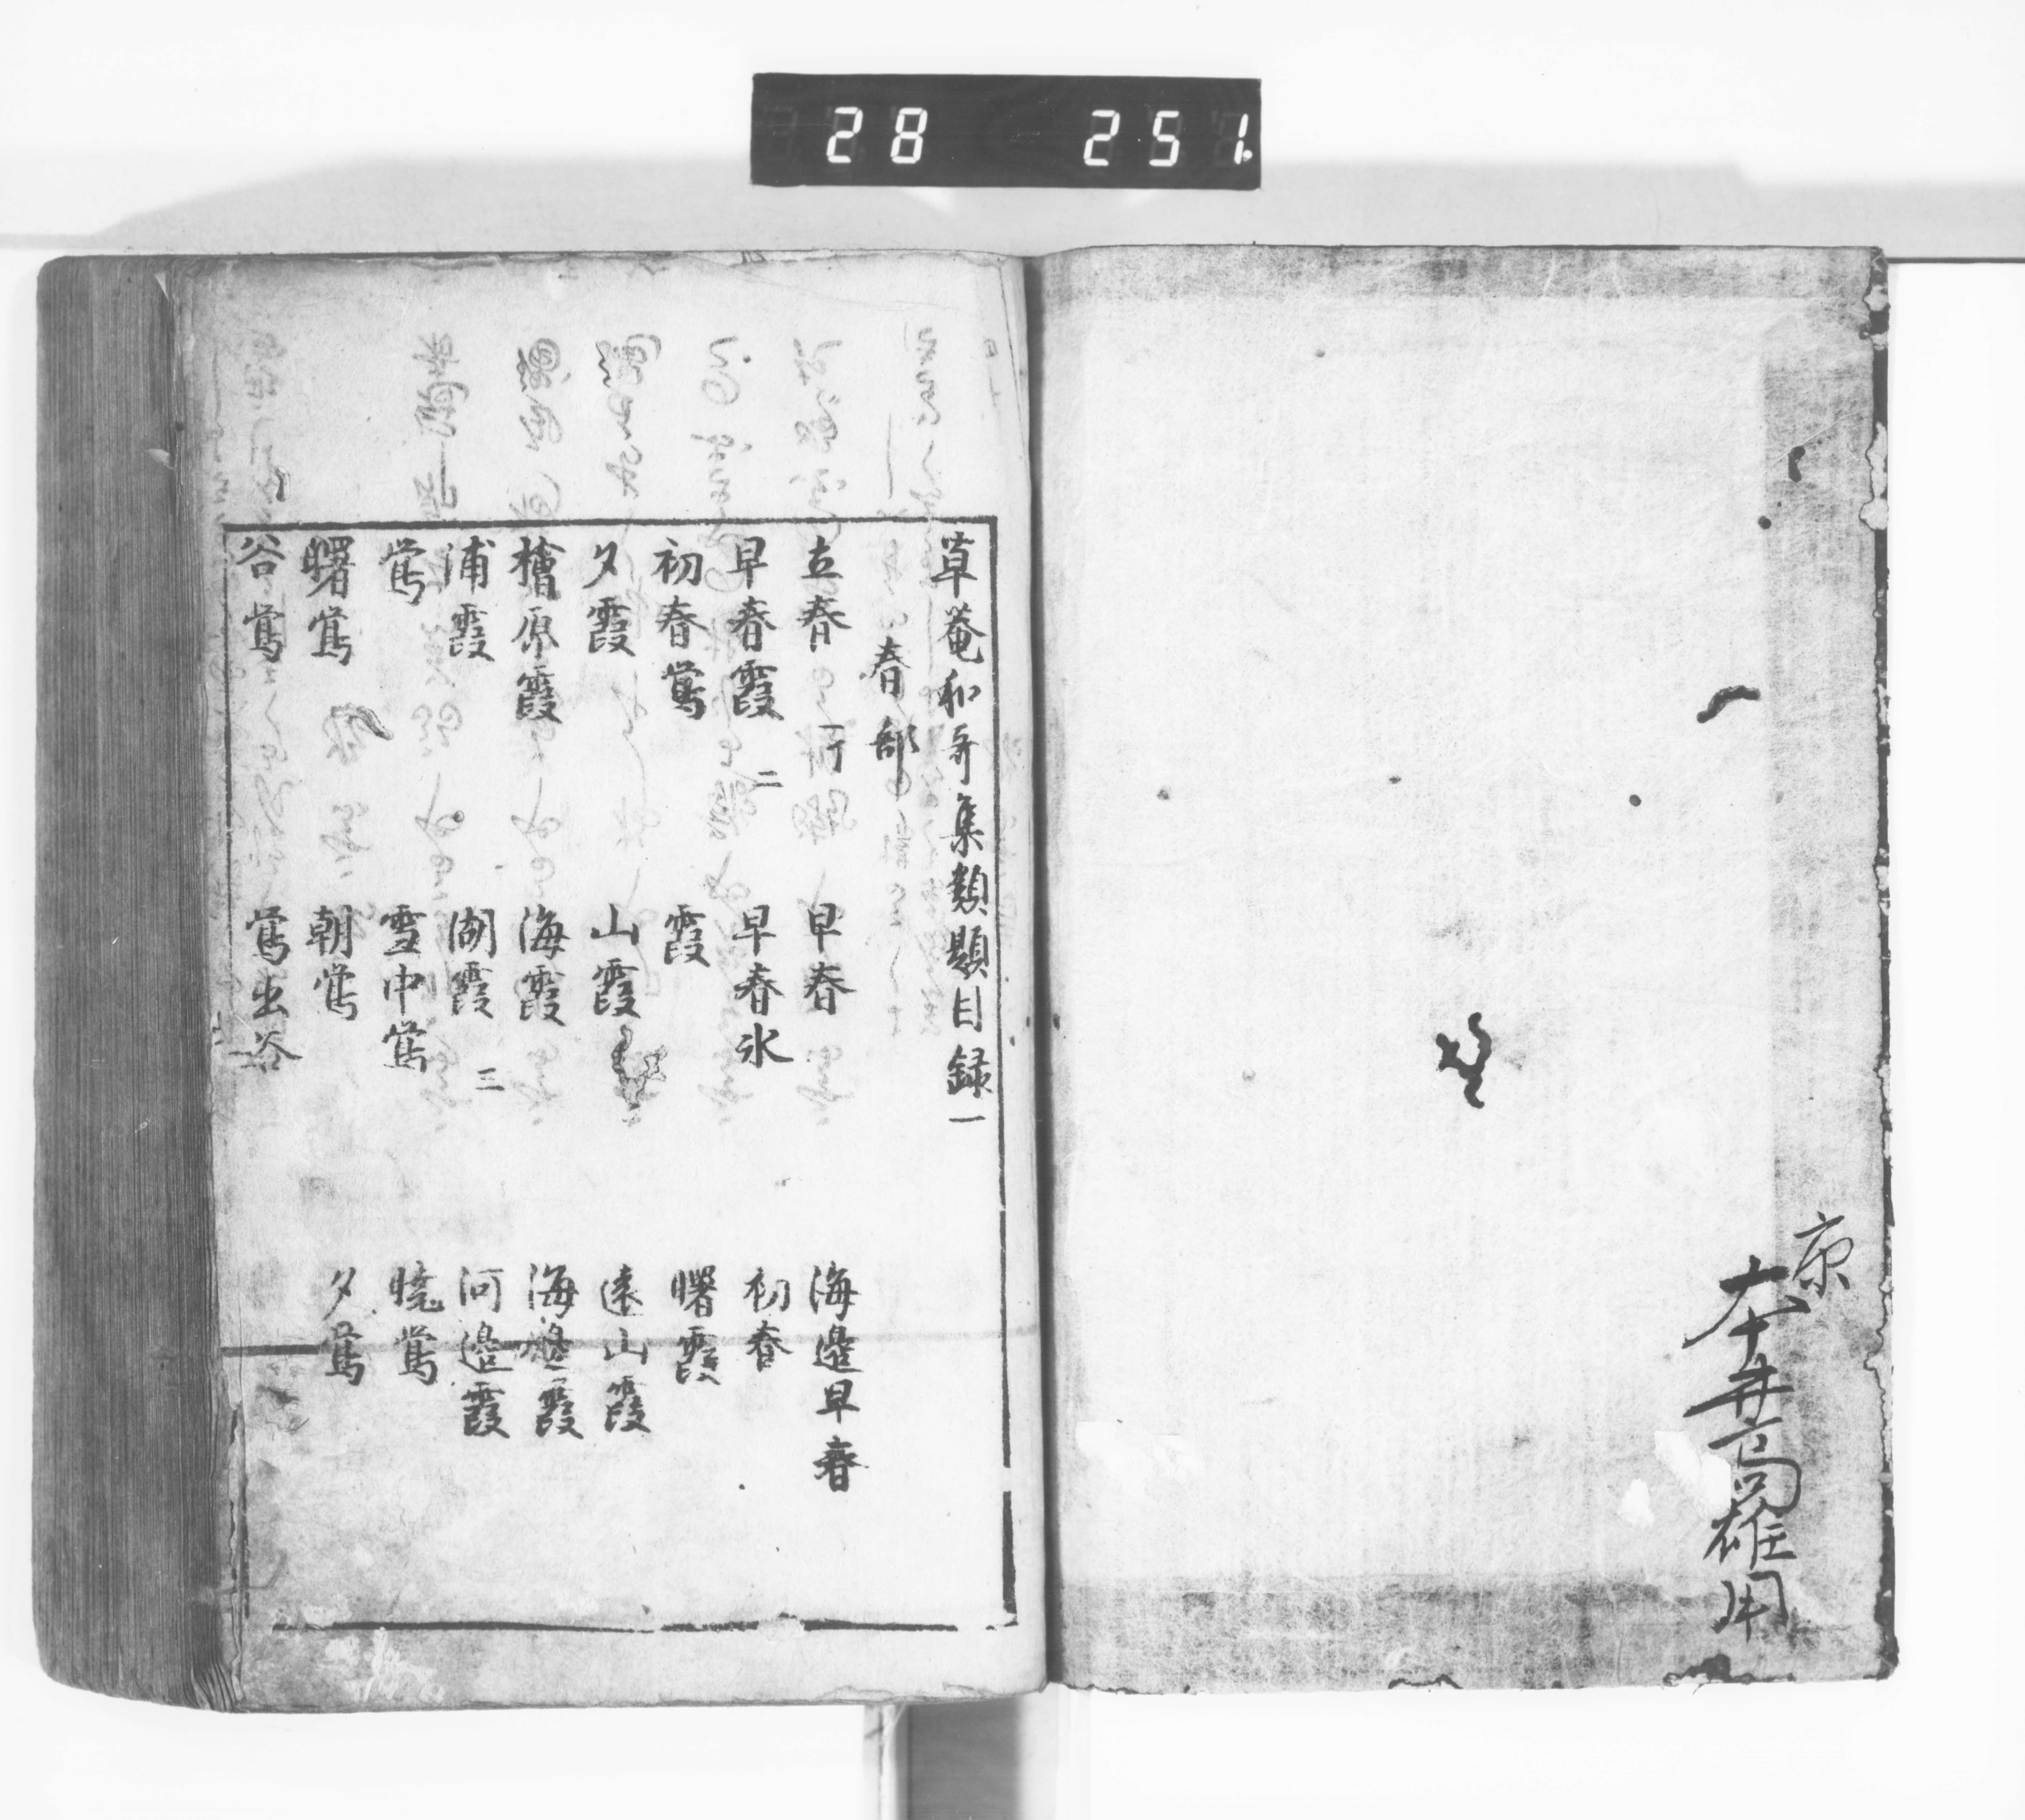 28 251
京
大十井高雄用
草菴和哥集類題目録一
春部
立春 一丁 早春 海邊早春
早春霞 二 早春氷 初春
初春鶯 霞 曙霞
夕霞 山霞 遠山霞
檜原霞 海霞 海邊霞
浦霞 湖霞 三 河邊霞
鶯 雪中鶯 曉鶯
曙鶯 朝鶯 夕鶯
谷鶯 鶯出谷